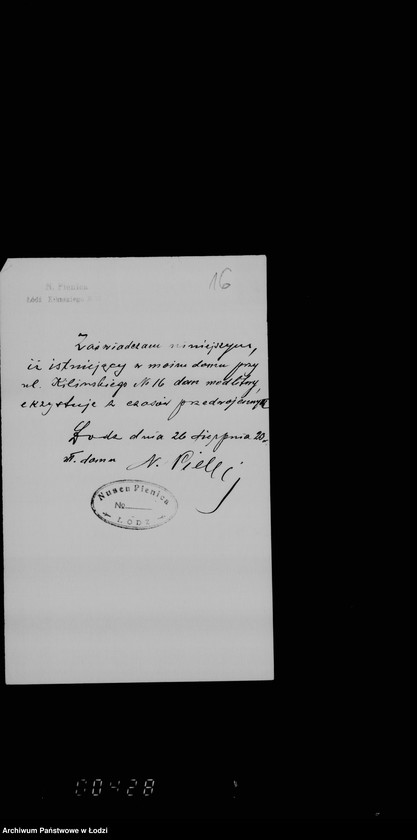 16
N. Pienica
Łódź
Zaświadczam niniejszym,
iż istniejący w moim domu przy
ul. Kilińskiego № 16 dom modlitwy,
ekzystuje z czasów przedwojennych
Łódź dnia 26 sierpnia 20
w. domu
Nusen Pienica
№
ŁÓDŹ
00428
Archiwum Państwowe w Łodzi